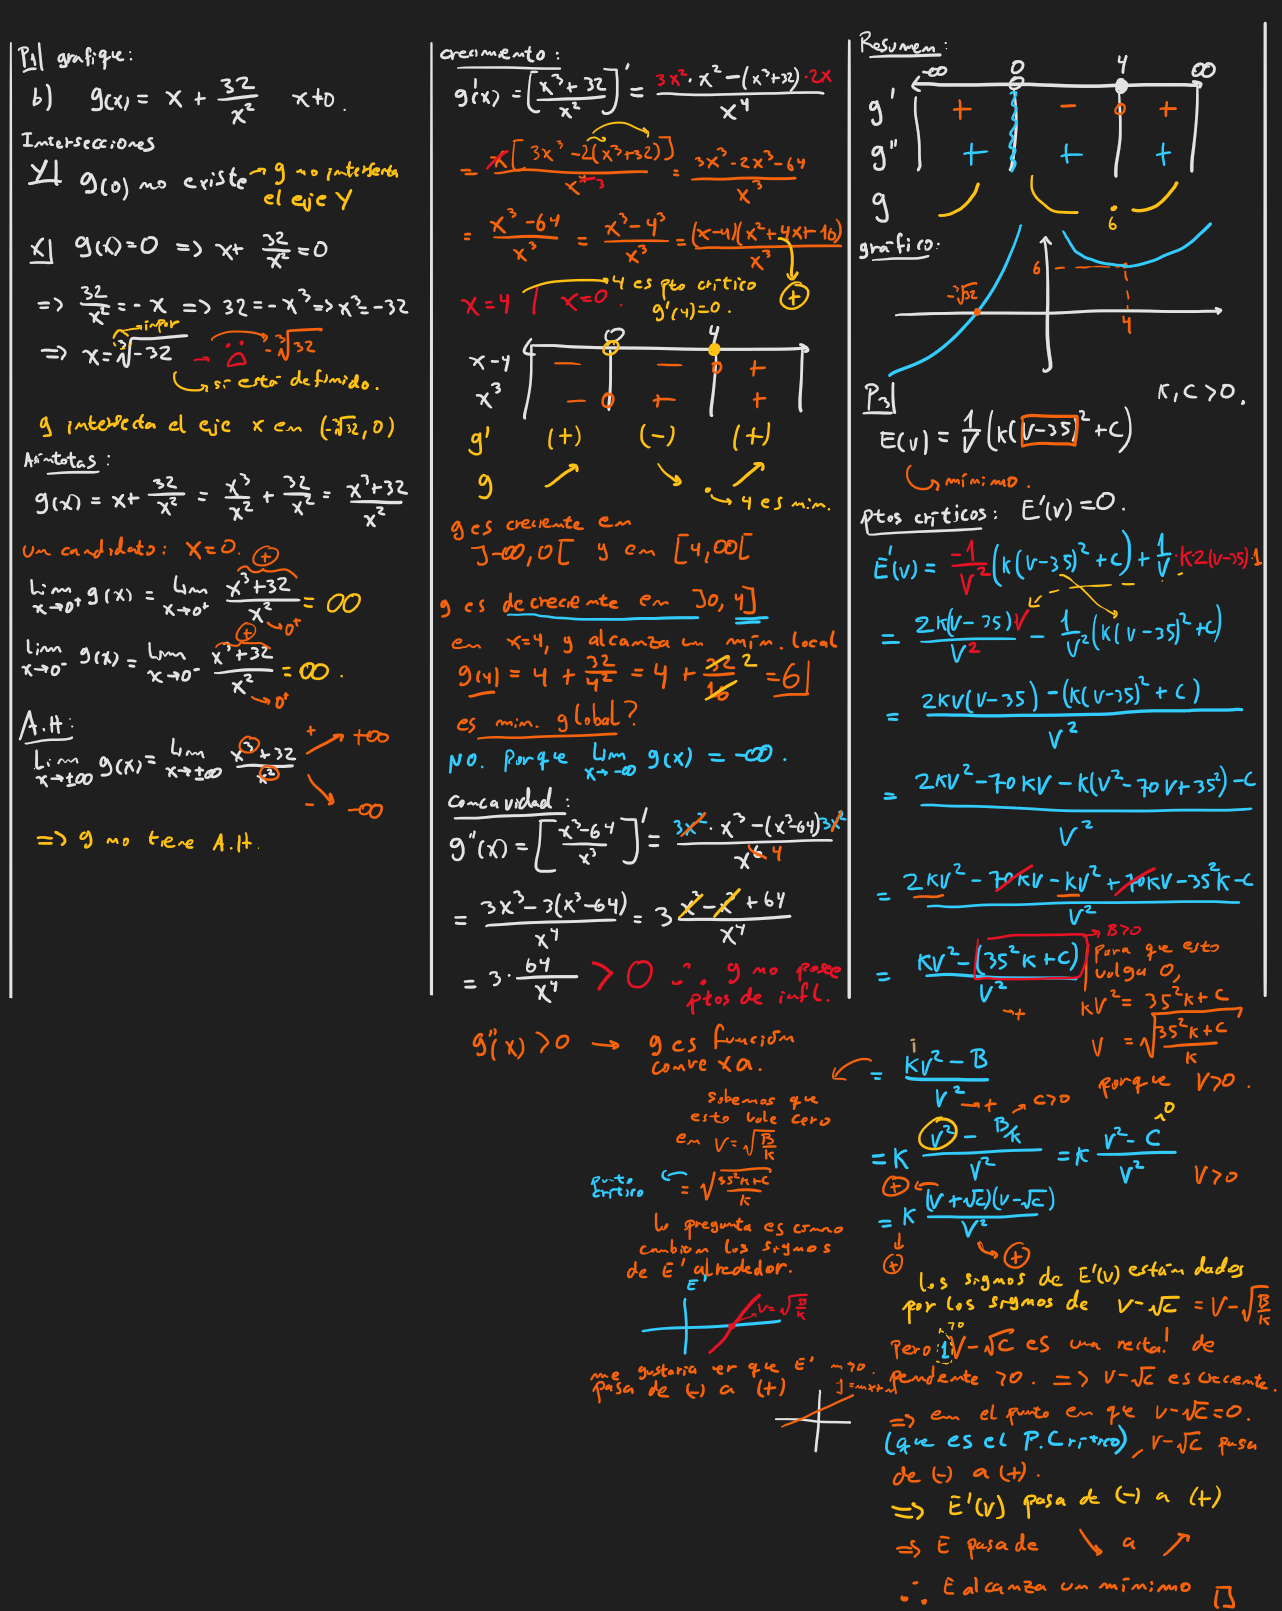 P1| grafique:
b) g(x) = x + 32/x² x≠0.
Intersecciones
Y| g(0) no existe → g no interseca
el eje Y
X| g(x)=0 => x+ 32/x² = 0
=> 32/x² = -x => 32 = -x³ => x³ = -32
impar
=> x = ³√-32 → -³√32
→ si está definido.
g interseca el eje x en (-³√32, 0)
Asíntotas:
g(x) = x + 32/x² = x³/x² + 32/x² = (x³+32)/x²
un candidato: x=0.
Lim x→0⁺ g(x) = Lim x→0⁺ (x³+32)/x² = ∞
(+) → 0⁺
Lim x→0⁻ g(x) = Lim x→0⁻ (x³+32)/x² = ∞.
(+) → 0⁺
A.H:
Lim x→±∞ g(x) = Lim x→±∞ (x³+32)/x²
+ +∞
- -∞
=> g no tiene A.H.
crecimiento:
g'(x) = [(x³+32)/x²]' = (3x²·x² - (x³+32)·2x)/x⁴
= x[3x³ - 2(x³+32)]/x⁴ ³ = (3x³-2x³-64)/x³
= (x³-64)/x³ = (x³-4³)/x³ = (x-4)(x²+4x+16)/x³
(+)
x=4 | x=0. 4 es pto crítico
g'(4)=0.
0 4
x-4 - - 0 +
x³ - 0 + +
g' (+) (-) (+)
g ↗ ↘ . ↗
→ 4 es min.
g es creciente en
]-∞,0[ y en [4,∞[
g es decreciente en ]0,4]
en x=4, g alcanza un mín. local
g(4) = 4 + 32/4² = 4 + 32/16 2 = 6|
es min. global?
NO. Porque Lim x→-∞ g(x) = -∞.
Concavidad:
g''(x) = [(x³-64)/x³]' = (3x²·x³ - (x³-64)3x²)/x⁶ 4
= (3x³-3(x³-64))/x⁴ = 3 (x³-x³+64)/x⁴
= 3·64/x⁴ > 0 ∴ g no posee
ptos de infl.
g''(x) > 0 → g es función
convexa.
Resumen:
-∞ 0 4 ∞
g' + - 0 +
g'' + + +
g . 6
gráfico:
6
-³√32
4
P3| K, C > 0.
E(v) = 1/V (K(V-35)² + C)
→ mínimo.
ptos críticos: E'(v) = 0.
E'(v) = -1/V² (K(V-35)² + C) + 1/V · K2(V-35)·1
= 2K(V-35)V/V² - 1/V² (K(V-35)² + C)
= (2KV(V-35) - (K(V-35)² + C))/V²
= (2KV² - 70KV - K(V² - 70V + 35²) - C)/V²
= (2KV² - 70KV - KV² + 70KV - 35²K - C)/V²
= (KV² - (35²K + C))/V² → B>0
→ +
Para que esto
valga 0,
KV² = 35²K + C
V = √((35²K + C)/K)
porque V>0.
= (KV² - B)/V²
→ +
Sabemos que
esto vale cero
en V = √(B/K)
punto
crítico ← = √((35²K+C)/K)
la pregunta es como
cambian los signos
de E' alrededor.
E'
V = √(B/K)
me gustaria ver que E'
pasa de (-) a (+)
m>0.
y = mx+n
= K (V² - B/K)/V² → C>0 = K (V² - C)/V² >0
V>0
(+)
= K (V+√C)(V-√C)/V²
(+) (+)
los signos de E'(v) están dados
por los signos de V-√C = V-√(B/K)
>0
Pero 1V-√C es una recta! de
pendiente >0. => V-√C es creciente.
=> en el punto en que V-√C=0.
(que es el P.Crítico), V-√C pasa
de (-) a (+).
=> E'(v) pasa de (-) a (+)
=> E pasa de ↘ a ↗
∴ E alcanza un mínimo □